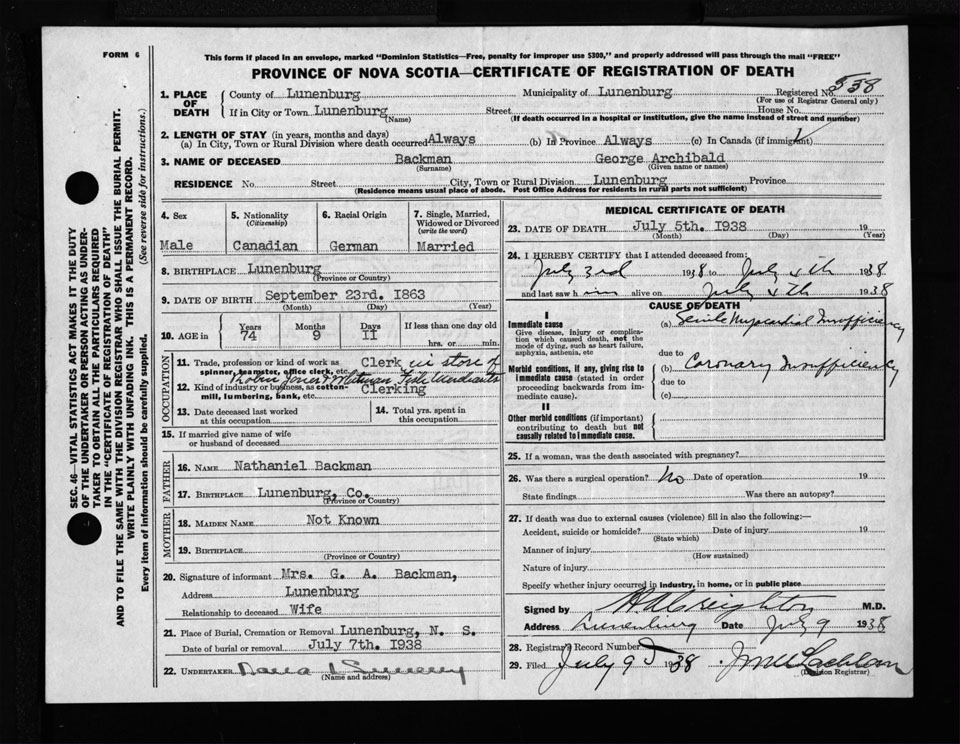 FORM 6
This form if placed in an envelope, marked "Dominion Statistics—Free, penalty for improper use $300," and properly addressed will pass through the mail "FREE"
PROVINCE OF NOVA SCOTIA—CERTIFICATE OF REGISTRATION OF DEATH
SEC. 46—VITAL STATISTICS ACT MAKES IT THE DUTY
OF THE UNDERTAKER OR PERSON ACTING AS UNDER-
TAKER TO OBTAIN ALL THE PARTICULARS REQUIRED
IN THE "CERTIFICATE OF REGISTRATION OF DEATH"
AND TO FILE THE SAME WITH THE DIVISION REGISTRAR WHO SHALL ISSUE THE BURIAL PERMIT.
WRITE PLAINLY WITH UNFADING INK. THIS IS A PERMANENT RECORD.
Every item of information should be carefully supplied. (See reverse side for instructions.)
1. PLACE OF DEATH
County of Lunenburg Municipality of Lunenburg Registered No. 538
(For use of Registrar General only)
If in City or Town Lunenburg Street House No.
(Name) (If death occurred in a hospital or institution, give the name instead of street and number)
2. LENGTH OF STAY (in years, months and days)
(a) In City, Town or Rural Division where death occurred Always (b) In Province Always (c) In Canada (if immigrant)
3. NAME OF DECEASED Backman George Archibald
(Surname) (Given name or names)
RESIDENCE No. Street City, Town or Rural Division Lunenburg Province
(Residence means usual place of abode. Post Office Address for residents in rural parts not sufficient)
4. Sex
Male
5. Nationality
(Citizenship)
Canadian
6. Racial Origin
German
7. Single, Married,
Widowed or Divorced
(write the word)
Married
8. BIRTHPLACE Lunenburg
(Province or Country)
9. DATE OF BIRTH September 23rd. 1863
(Month) (Day) (Year)
10. AGE in
Years Months Days If less than one day old
74 9 11 hrs. or min.
OCCUPATION
11. Trade, profession or kind of work as Clerk in store of
spinner, teamster, office clerk, etc.
12. Kind of industry or business, as cotton-
mill, lumbering, bank, etc. Clerking
13. Date deceased last worked
at this occupation
14. Total yrs. spent in
this occupation
15. If married give name of wife
or husband of deceased
FATHER
16. NAME Nathaniel Backman
17. BIRTHPLACE Lunenburg, Co.
(Province or Country)
MOTHER
18. MAIDEN NAME Not Known
19. BIRTHPLACE
(Province or Country)
20. Signature of informant Mrs. G. A. Backman,
Address Lunenburg
Relationship to deceased Wife
21. Place of Burial, Cremation or Removal Lunenburg, N. S.
Date of burial or removal July 7th. 1938
22. UNDERTAKER
(Name and address)
MEDICAL CERTIFICATE OF DEATH
23. DATE OF DEATH July 5th. 1938 19
(Month) (Day) (Year)
24. I HEREBY CERTIFY that I attended deceased from:
July 3rd 1938 to July 4th 1938
and last saw him alive on July 4th 1938
CAUSE OF DEATH
I
Immediate cause
Give disease, injury or complica-
tion which caused death, not the
mode of dying, such as heart failure,
asphyxia, asthenia, etc
(a) Senile Myocardial Insufficiency
due to
Morbid conditions, if any, giving rise to
immediate cause (stated in order
proceeding backwards from im-
mediate cause).
(b) Coronary Insufficiency
due to
(c)
II
Other morbid conditions (if important)
contributing to death but not
causally related to immediate cause.
25. If a woman, was the death associated with pregnancy?
26. Was there a surgical operation? No Date of operation 19
State findings Was there an autopsy?
27. If death was due to external causes (violence) fill in also the following:—
Accident, suicide or homicide? Date of injury 19
(State which)
Manner of injury
(How sustained)
Nature of injury
Specify whether injury occurred in industry, in home, or in public place
Signed by H A Creighton M.D.
Address Lunenburg Date July 9 1938
28. Registrar's Record Number
29. Filed July 9 1938
(Division Registrar)